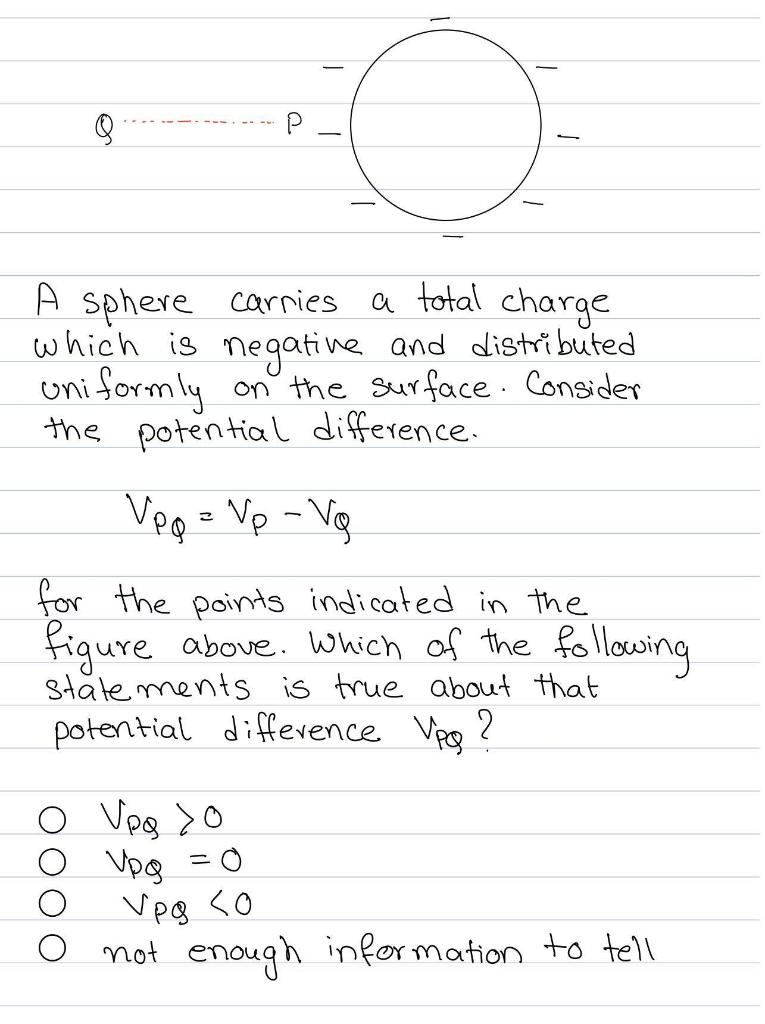 Q P
A sphere carries a total charge
which is negative and distributed
uniformly on the surface. Consider
the potential difference.
VPQ = VP - VQ
for the points indicated in the
figure above. Which of the following
statements is true about that
potential difference VPQ ?
VPQ > 0
VPQ = 0
VPQ < 0
not enough information to tell